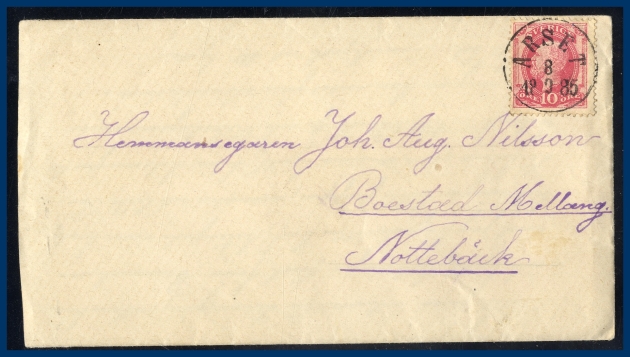 SVERIGE
ARSET
8
18 9 85
10
Hemmansegaren Joh. Aug. Nilsson
Boestad Mellang.
Nottebäck